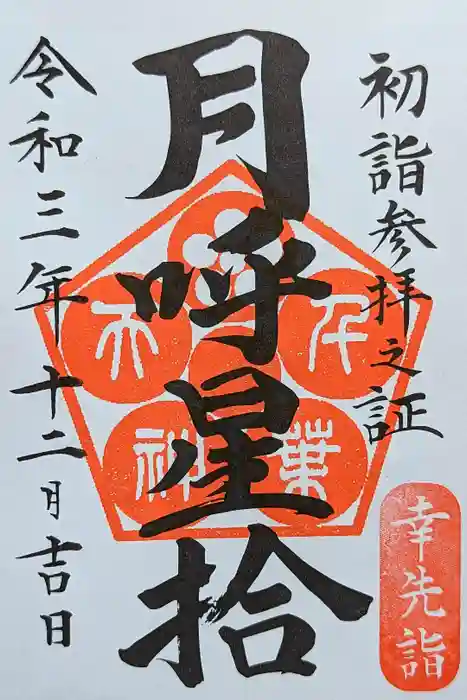 初詣参拝之証
幸先詣
月呼星拾
千葉
天神
令和三年十二月吉日